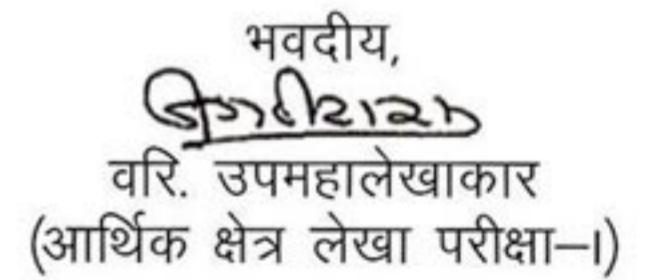 भवदीय,
वरि. उपमहालेखाकार
(आर्थिक क्षेत्र लेखा परीक्षा–I)